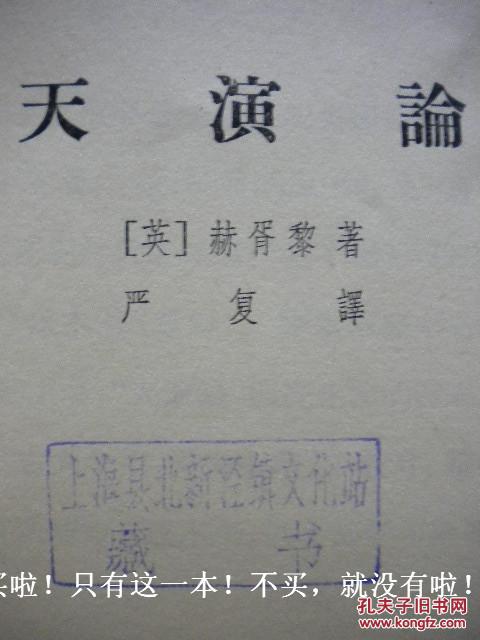 天演論
[英]赫胥黎著
严复譯
上海县北新泾镇文化站
藏书
买啦！只有这一本！不买，就没有啦！
孔夫子旧书网
www.kongfz.com